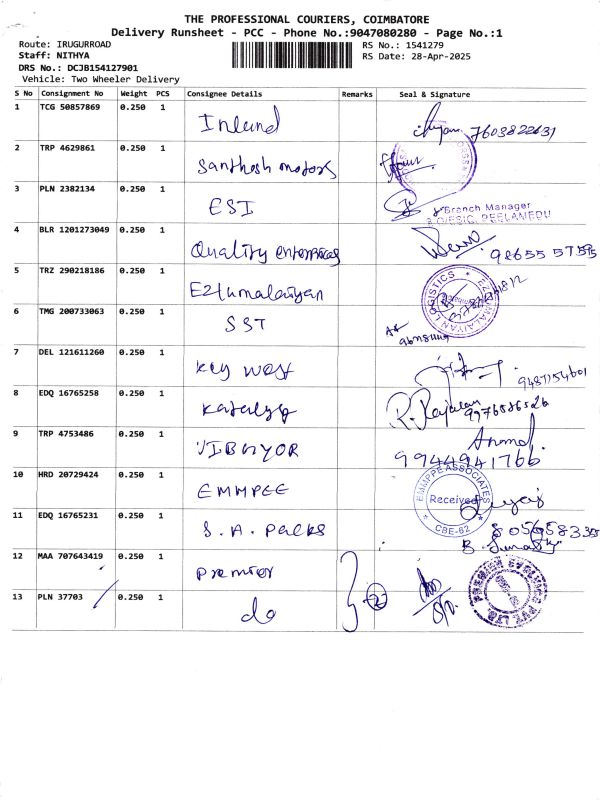 THE PROFESSIONAL COURIERS, COIMBATORE
Delivery Runsheet - PCC - Phone No.:9047080280 - Page No.:1
Route: IRUGURROAD RS No.: 1541279
Staff: NITHYA RS Date: 28-Apr-2025
DRS No.: DCJB154127901
Vehicle: Two Wheeler Delivery
S No Consignment No Weight PCS Consignee Details Remarks Seal & Signature
1 TCG 50857869 0.250 1 Inland 7603822631
2 TRP 4629861 0.250 1 Santhosh motors
3 PLN 2382134 0.250 1 ESI Branch Manager
PEELAMEDU
4 BLR 1201273049 0.250 1 Quality enterprises
5 TRZ 290218186 0.250 1 Ezhumalaiyan EZHUMALAIYAN LOGISTICS
6 TMG 200733063 0.250 1 SST
7 DEL 121611260 0.250 1 Key West 9487154601
8 EDQ 16765258 0.250 1 R. Rajalan
9 TRP 4753486 0.250 1 VIBGYOR Anand
9944941766
10 HRD 20729424 0.250 1 EMMPEE EMMPPE ASSOCIATES Received CBE-62
11 EDQ 16765231 0.250 1 S. A. Packs
12 MAA 707643419 0.250 1 Premier
13 PLN 37703 0.250 1 do 2